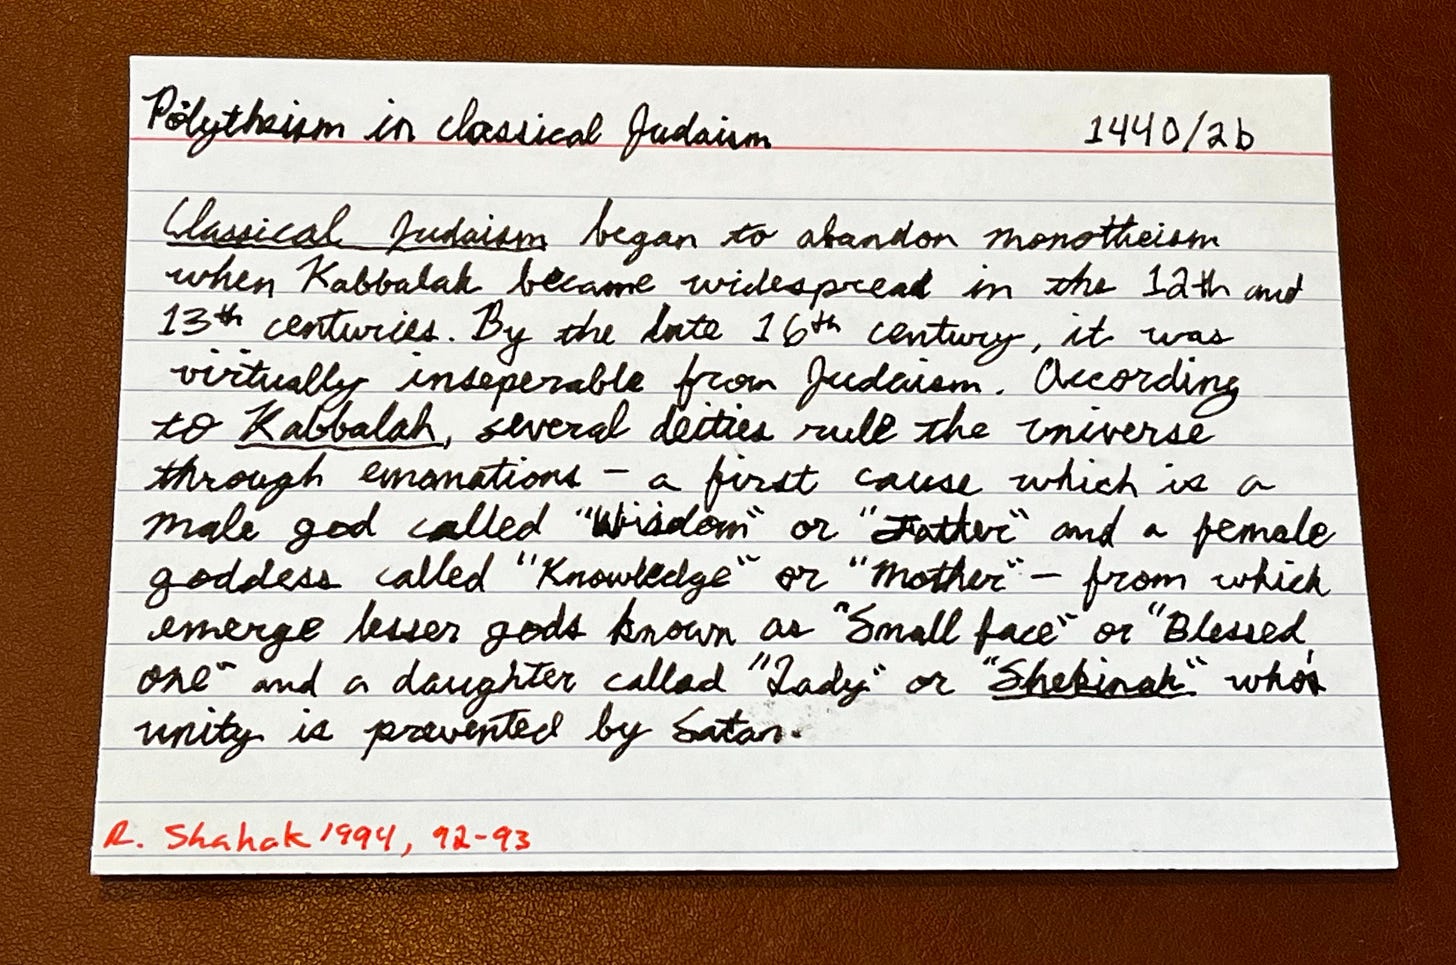 Polytheism in classical Judaism 1440/2b
Classical Judaism began to abandon monotheism
when Kabbalah became widespread in the 12th and
13th centuries. By the late 16th century, it was
virtually inseperable from Judaism. According
to Kabbalah, several deities rule the universe
through emanations – a first cause which is a
male god called "Wisdom" or "Father" and a female
goddess called "Knowledge" or "Mother" – from which
emerge lesser gods known as "Small face" or "Blessed
one" and a daughter called "Lady" or "Shekinah" who's
unity is prevented by Satan.
R. Shahak 1994, 92-93